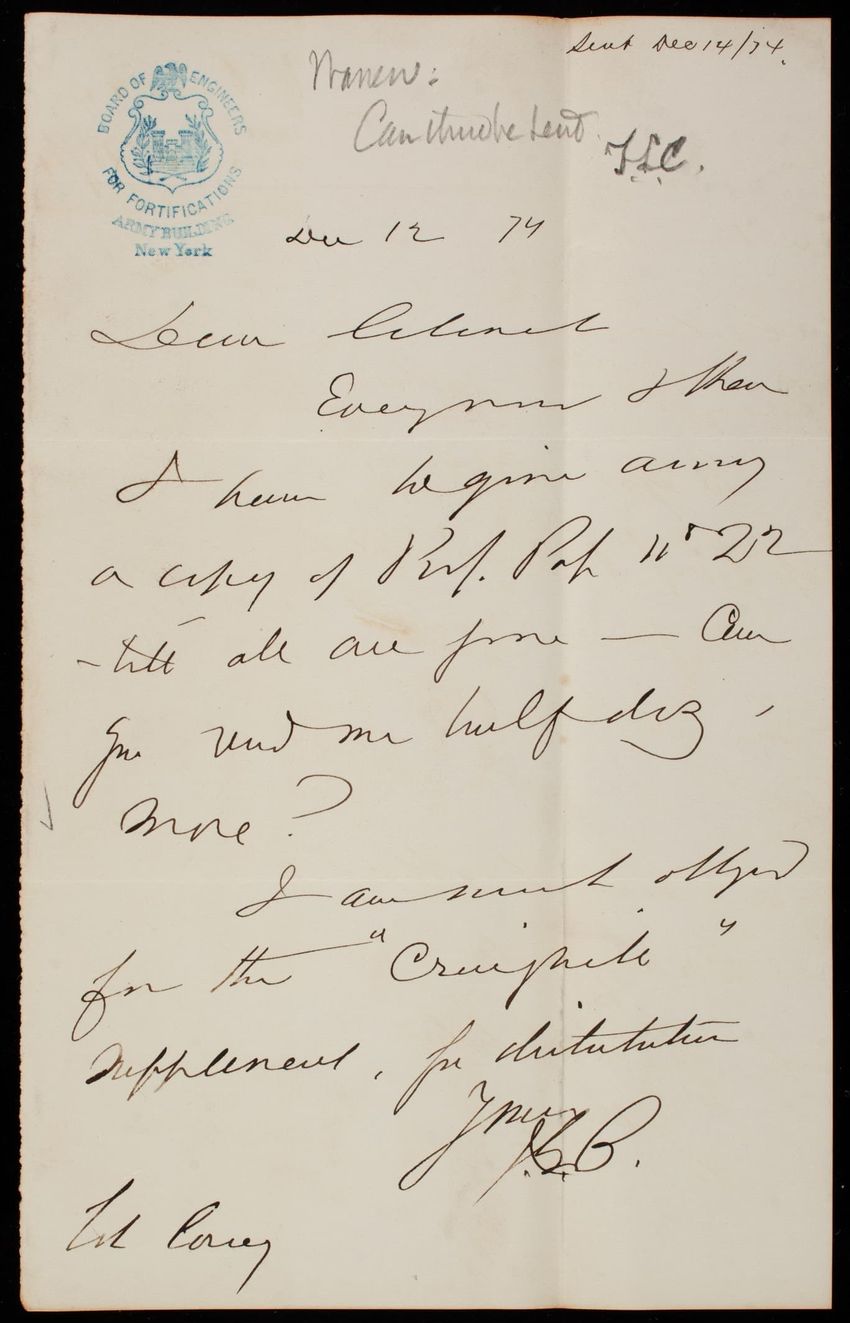 Sent Dec 14/74.
Can these be sent.
T.L.C.
BOARD OF ENGINEERS
FOR FORTIFICATIONS
ARMY BUILDING
New York
Dec 12 74
Dear Colonel
Every now & then
I have to give away
a copy of Prof. Pap No 22
till all are gone — Can
you send me half doz,
more?
I am much oblig'd
for the "Craighill"
supplement, for distribution
Yours
J.G.B.
Col Casey